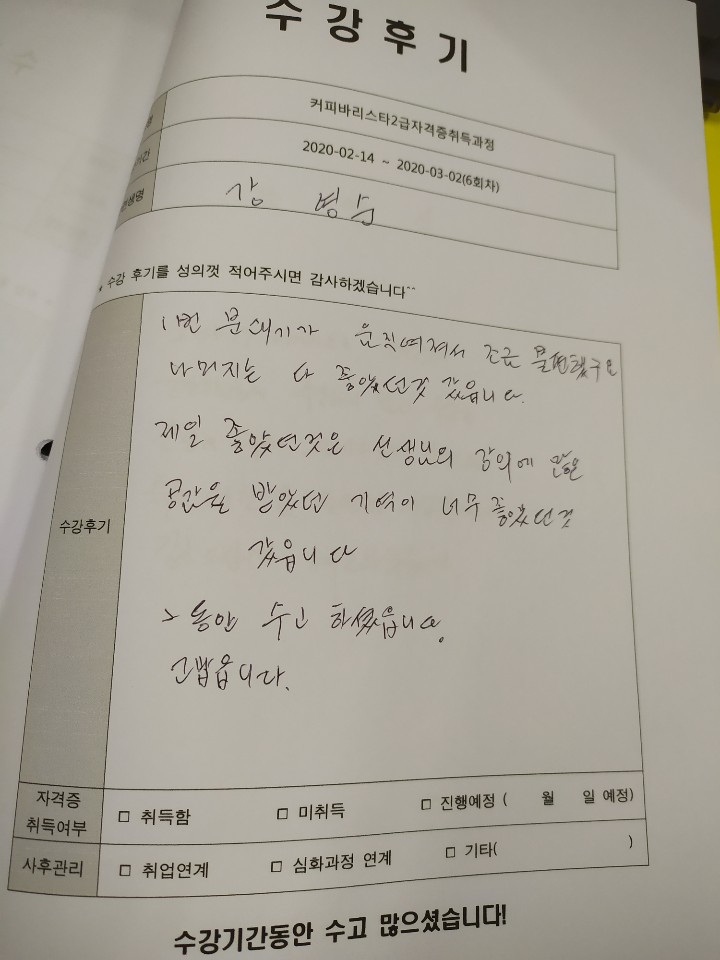 수강후기
커피바리스타2급자격증취득과정
2020-02-14 ~ 2020-03-02(6회차)
강 병수
수강 후기를 성의껏 적어주시면 감사하겠습니다^^
수강후기
1번 분쇄기가 움직여져서 조금 불편했구요
나머지는 다 좋았던것 같읍니다.
제일 좋았던것은 선생님의 강의에 많은
공감을 받았던 기억이 너무 좋았던것
같읍니다
동안 수고 하셨읍니다.
고맙읍니다.
자격증
취득여부
□ 취득함 □ 미취득 □ 진행예정 ( 월 일 예정)
사후관리 □ 취업연계 □ 심화과정 연계 □ 기타( )
수강기간동안 수고 많으셨습니다!